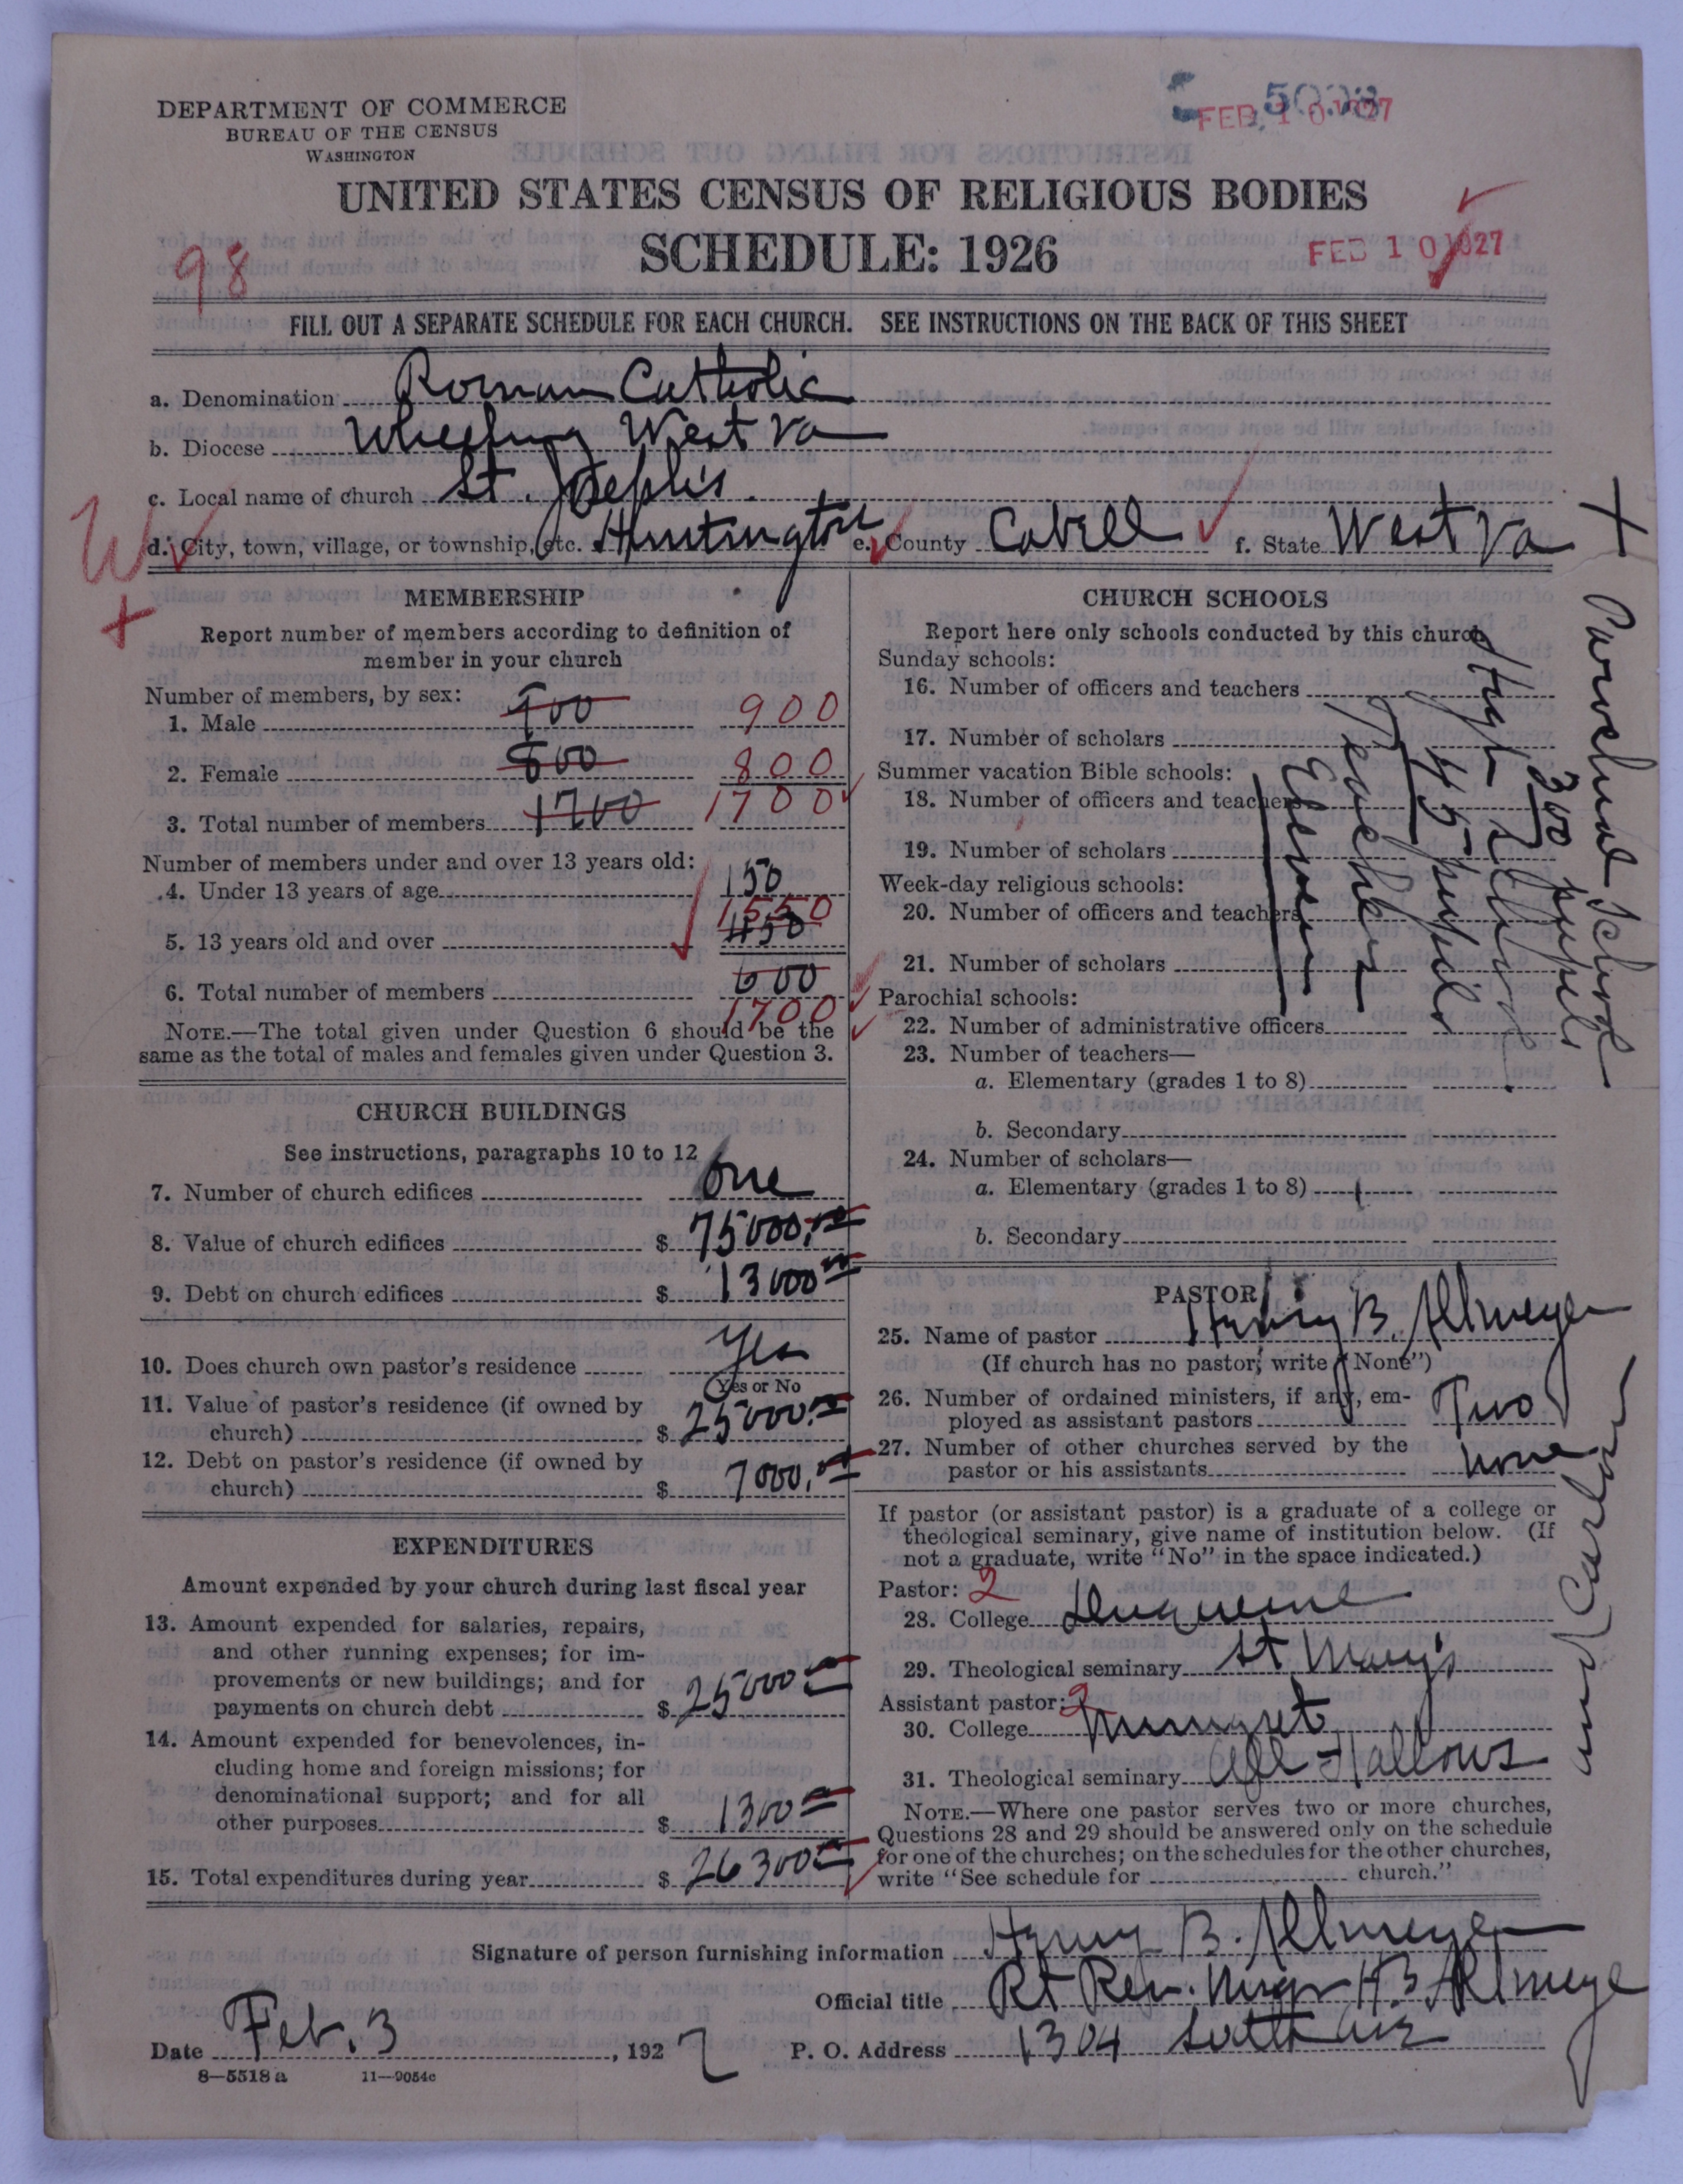 DEPARTMENT OF COMMERCE
BUREAU OF THE CENSUS
WASHINGTON
FEB 10 1927
UNITED STATES CENSUS OF RELIGIOUS BODIES
SCHEDULE: 1926
FEB 10 1927
98
FILL OUT A SEPARATE SCHEDULE FOR EACH CHURCH. SEE INSTRUCTIONS ON THE BACK OF THIS SHEET
a. Denomination Roman Catholic
b. Diocese Wheeling West Va
c. Local name of church St. Joseph's
d. City, town, village, or township, etc. Huntington e. County Cabell f. State West Va
W
+
MEMBERSHIP
Report number of members according to definition of
member in your church
Number of members, by sex:
1. Male 900 900
2. Female 800 800
3. Total number of members 1700 1700
Number of members under and over 13 years old:
4. Under 13 years of age 150
1550
5. 13 years old and over 450
6. Total number of members 600
1700
NOTE.—The total given under Question 6 should be the
same as the total of males and females given under Question 3.
CHURCH BUILDINGS
See instructions, paragraphs 10 to 12
7. Number of church edifices One
8. Value of church edifices $ 75000.00
9. Debt on church edifices $ 13000.00
10. Does church own pastor's residence Yes
Yes or No
11. Value of pastor's residence (if owned by
church) $ 25000.00
12. Debt on pastor's residence (if owned by
church) $ 7000.00
EXPENDITURES
Amount expended by your church during last fiscal year
13. Amount expended for salaries, repairs,
and other running expenses; for im-
provements or new buildings; and for
payments on church debt $ 25000.00
14. Amount expended for benevolences, in-
cluding home and foreign missions; for
denominational support; and for all
other purposes $ 1300.00
15. Total expenditures during year $ 26300.00
CHURCH SCHOOLS
Report here only schools conducted by this church
Sunday schools:
16. Number of officers and teachers
17. Number of scholars
Summer vacation Bible schools:
18. Number of officers and teachers
19. Number of scholars
Week-day religious schools:
20. Number of officers and teachers
21. Number of scholars
Parochial schools:
22. Number of administrative officers
23. Number of teachers—
a. Elementary (grades 1 to 8)
b. Secondary
24. Number of scholars—
a. Elementary (grades 1 to 8)
b. Secondary
+ Parochial School
300 pupils
High School
45 pupils
Teachers
Eleven
PASTOR
25. Name of pastor Henry B. Altmeyer
(If church has no pastor, write "None")
26. Number of ordained ministers, if any, em-
ployed as assistant pastors Two
27. Number of other churches served by the
pastor or his assistants none
If pastor (or assistant pastor) is a graduate of a college or
theological seminary, give name of institution below. (If
not a graduate, write "No" in the space indicated.)
Pastor: 2
28. College Duquesne
29. Theological seminary St. Mary's
Assistant pastor: 2
30. College Mungret
31. Theological seminary All Hallows
and Carlow
NOTE.—Where one pastor serves two or more churches,
Questions 28 and 29 should be answered only on the schedule
for one of the churches; on the schedules for the other churches,
write "See schedule for church."
Signature of person furnishing information Henry B. Altmeyer
Official title Rt Rev. Msgr H B Altmeye
Date Feb. 3, 1927 P. O. Address 1304 Sixth Ave
8—5518 a 11—9054c